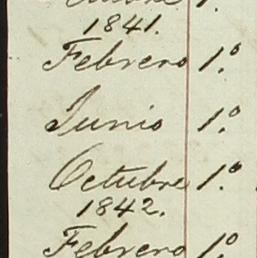 1841.
Febrero 1.º
Junio 1.º
Octubre 1.º
1842.
Febrero 1.º